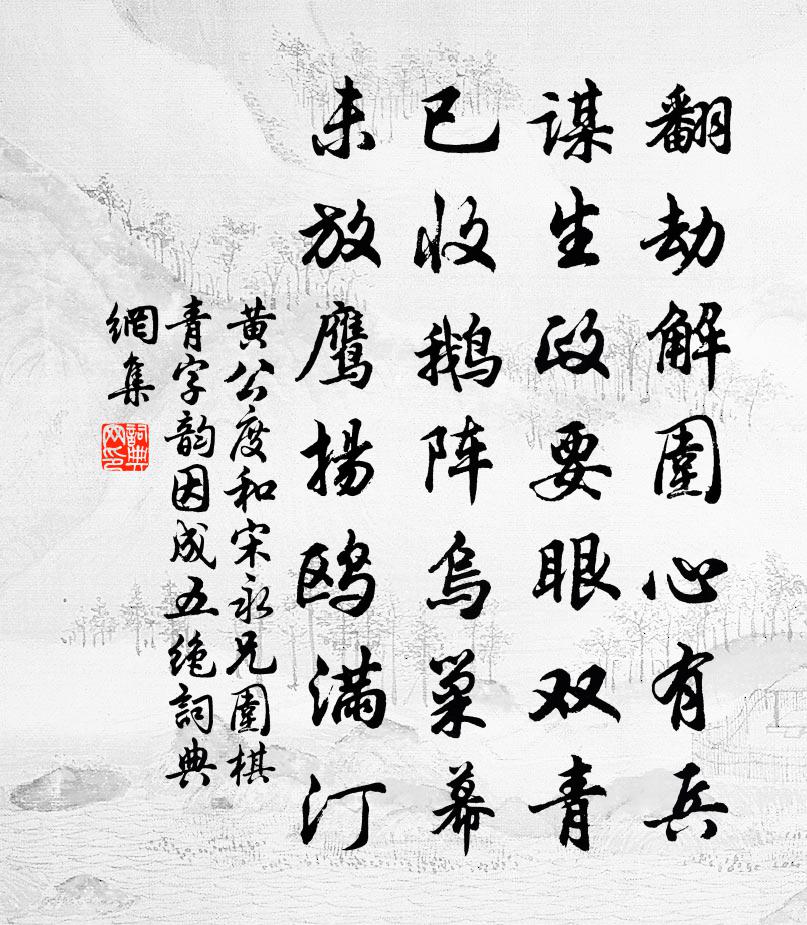 翻劫解圍心有兵
谋生政要眼双青
已收鹅阵乌巢幕
未放鹰揚鸥满汀
黄公度和宋永兄圍棋
青字韵因成五绝詞典
網集
詞典網印